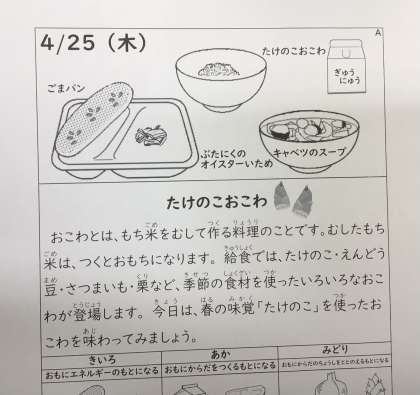 4/25（木）
A
たけのこおこわ
ぎゅう
にゅう
ごまパン
ぶたにくの
オイスターいため
キャベツのスープ
たけのこおこわ
おこわとは、もち米をむして作る料理のことです。むしたもち
米は、つくとおもちになります。給食では、たけのこ・えんどう
豆・さつまいも・栗など、季節の食材を使ったいろいろなおこ
わが登場します。今日は、春の味覚「たけのこ」を使ったお
こわを味わってみましょう。
きいろ
あか
みどり
おもにエネルギーのもとになる
おもにからだをつくるもとになる
おもにからだのちょうしをととのえるもとになる